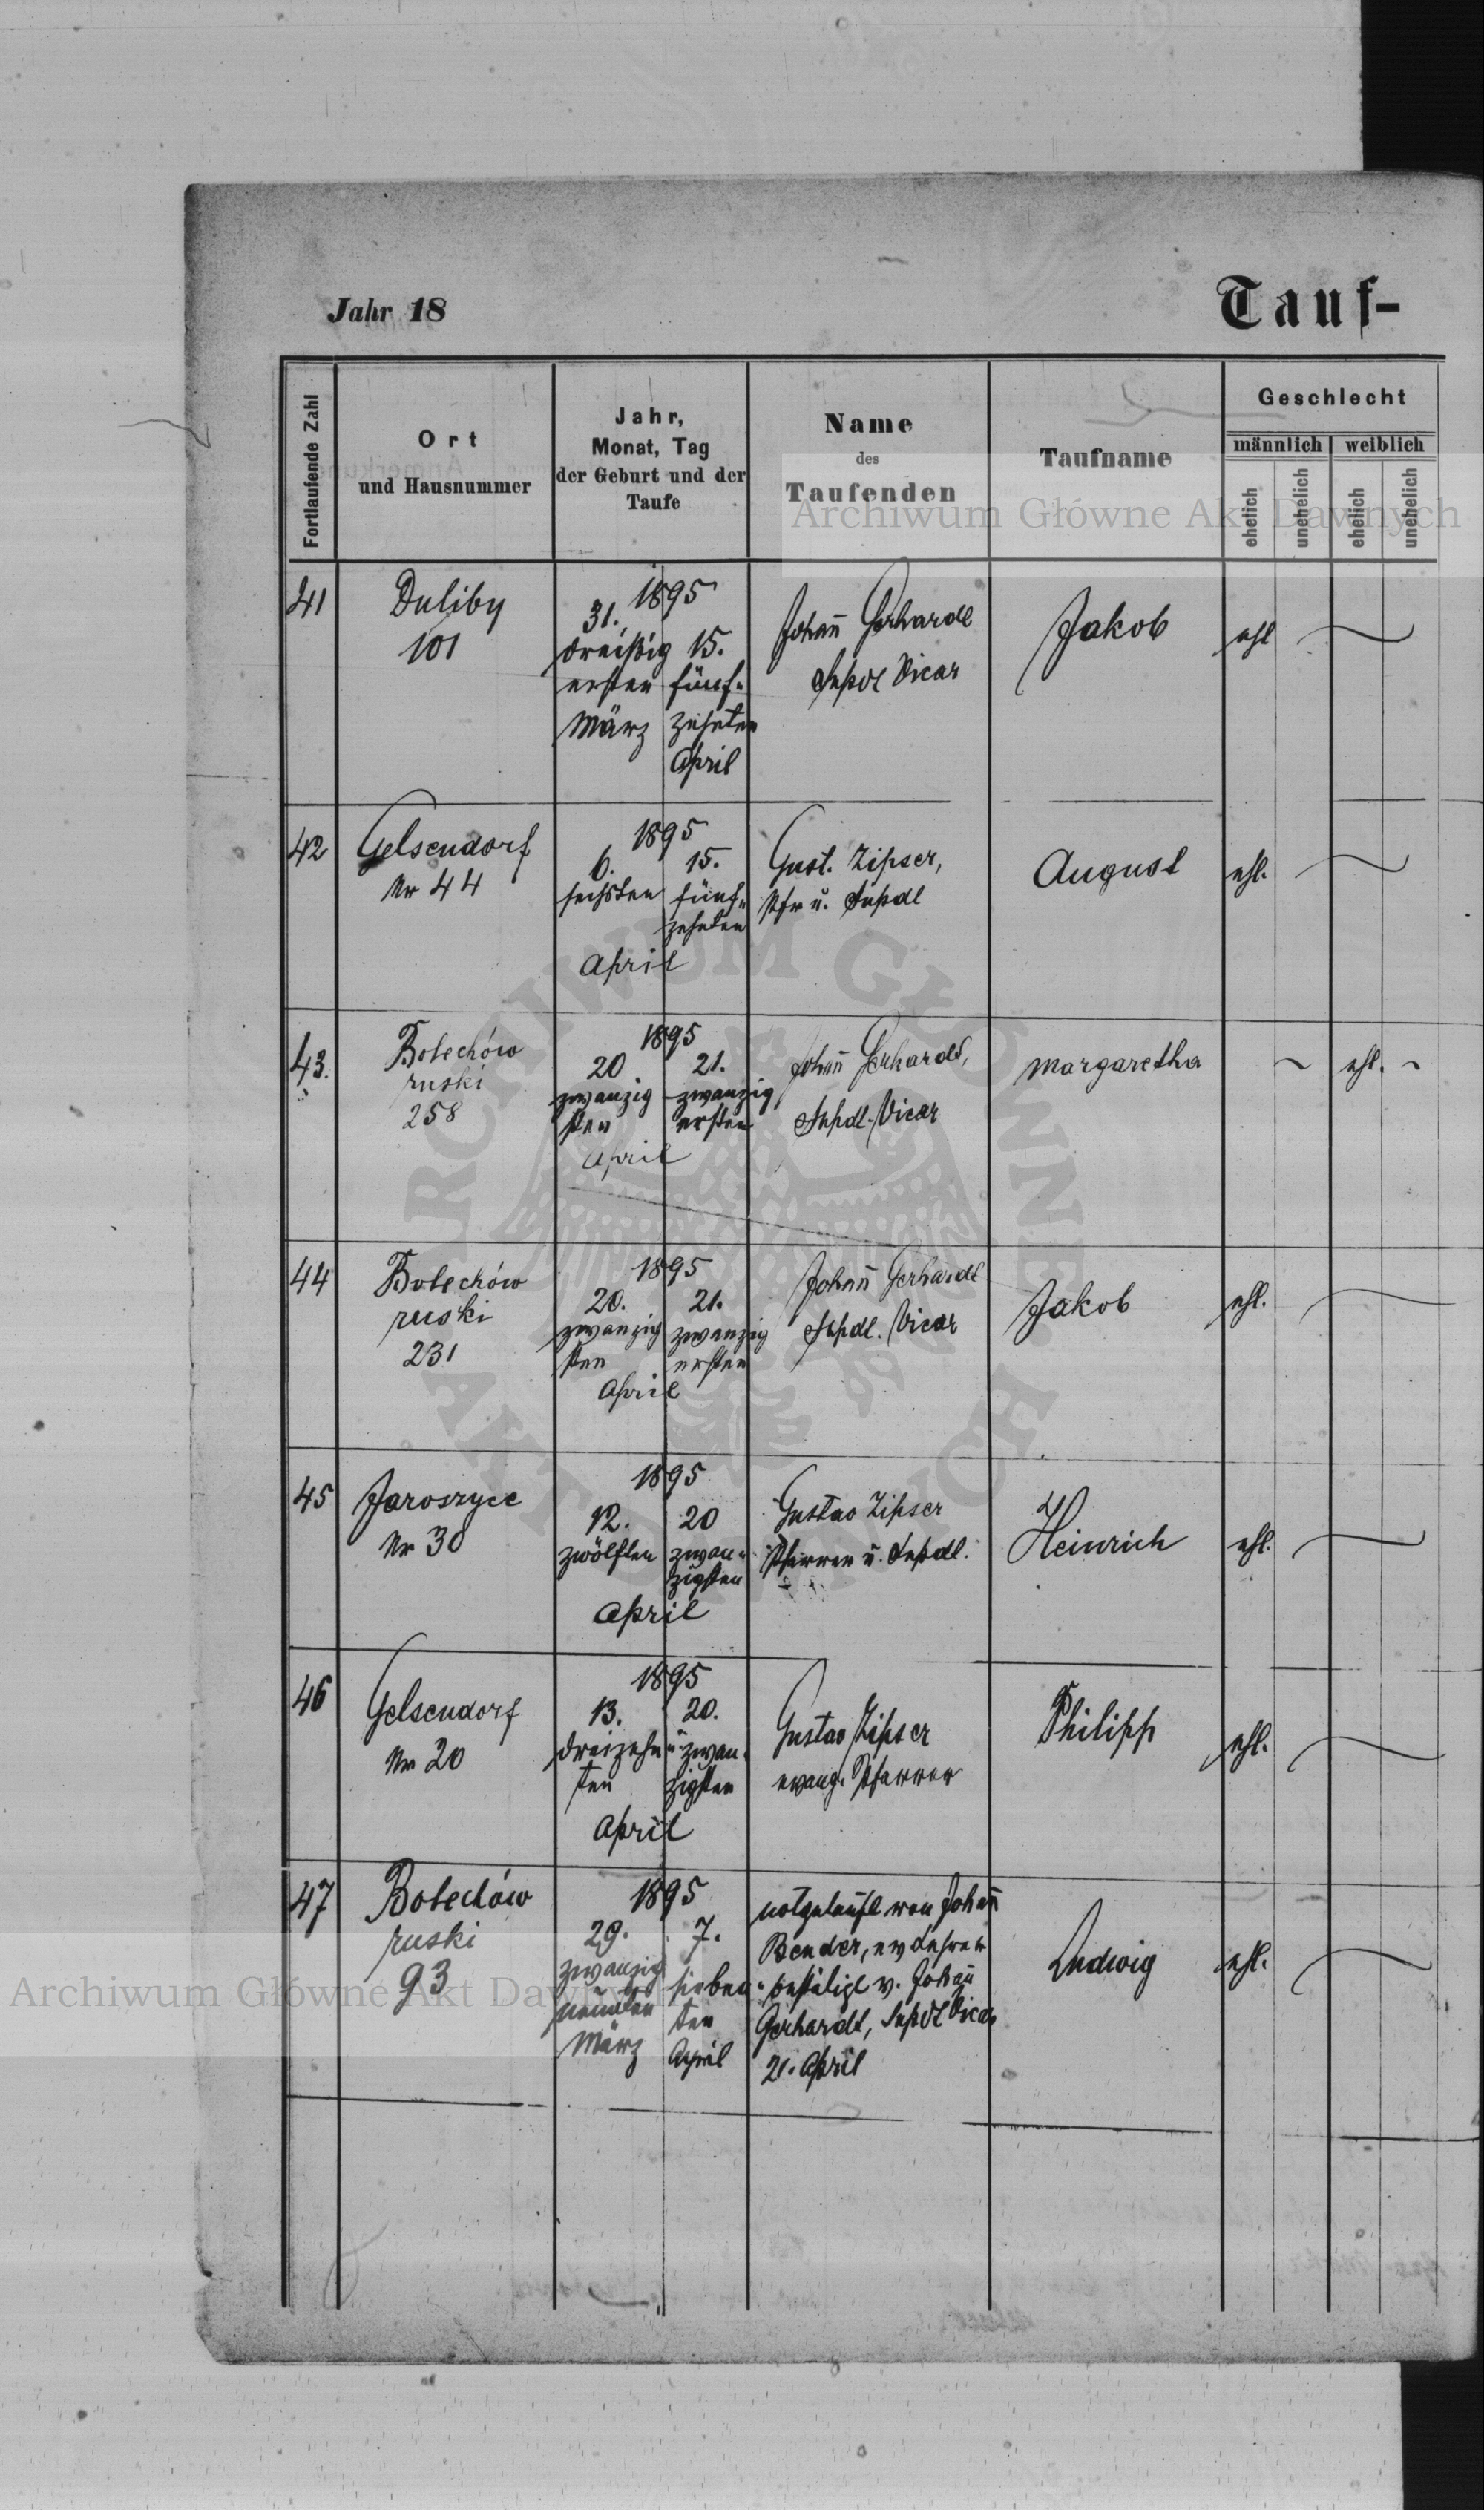 Jahr 18
Tauf-
Fortlaufende Zahl
Ort
und Hausnummer
Jahr,
Monat, Tag
der Geburt und der
Taufe
Name
des
Taufenden
Taufname
Geschlecht
männlich weiblich
ehelich unehelich ehelich unehelich
Archiwum Główne Akt Dawnych
41
Duliby
101
1895
31.
dreißig 15.
ersten fünf-
März zehnten
April
Johan̄ Gerhardt
Supdt Vicar
Jakob
ehl
42
Gelsendorf
Nr 44
1895
6. 15.
sechsten fünf-
zehnten
April
Gust. Zipser,
Pfr u. Supdt
August
ehl.
43.
Bolechów
ruski
258
1895
20 21.
zwanzig zwanzig
sten ersten
April
Johan̄ Gerhardt,
Supdt.-Vicar
Margaretha
ehl.
44
Bolechów
ruski
231
1895
20. 21.
zwanzig zwanzig
sten ersten
April
Johan̄ Gerhardt
Supdt. Vicar
Jakob
ehl.
45
Jaroszyce
Nr 30
1895
12. 20
zwölften zwan-
zigsten
April
Gustav Zipser
Pfarrer u. Supdt.
Heinrich
ehl.
46
Gelsendorf
Nr 20
1895
13. 20.
dreizehn- zwan-
ten zigsten
April
Gustav Zipser
evang. Pfarrer
Philipp
ehl.
47
Bolechów
ruski
93
1895
29. 7.
zwanzig sieben-
neunten ten
März April
notgetauft von Johan̄
Bender, ev Lehrer
bestätigt v. Johan̄
Gerhardt, Supdt Vicar
21. April
Ludwig
ehl.
Archiwum Główne Akt Dawnych
ARCHIWUM GŁÓWNE AKT DAWNYCH